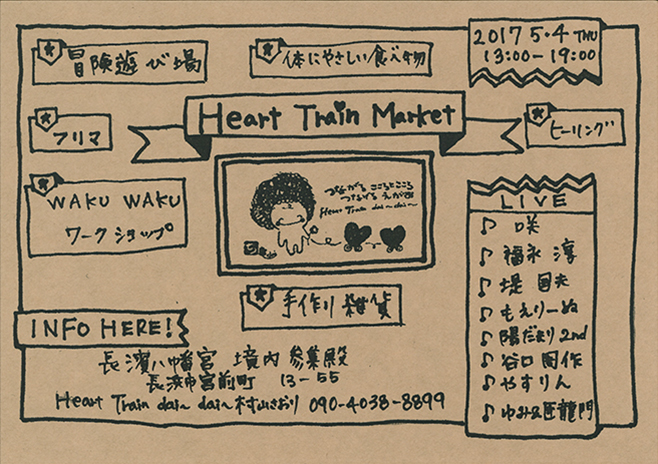 冒険遊び場
体にやさしい食べ物
2017 5・4 THU
13:00-19:00
フリマ
Heart Train Market
ヒーリング
WAKU WAKU
ワークショップ
つながる こころとこころ
つなげる えがお
Heart Train dai〜dai〜
手作り雑貨
LIVE
♪ 咲
♪ 福永 淳
♪ 堤 国夫
♪ もえりーぬ
♪ 陽だまり2nd
♪ 谷口 国作
♪ やすりん
♪ ゆみ&匠龍門
INFO HERE!
長濱八幡宮 境内 参集殿
長浜市宮前町 13-55
Heart Train dai〜dai〜 村山さおり 090-4038-8899